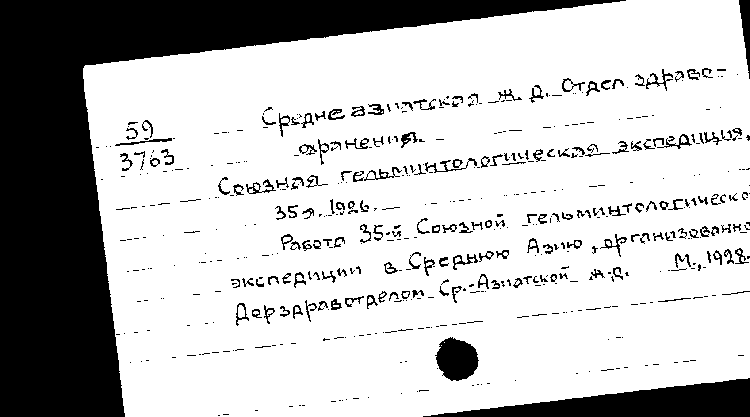 59
3763
Средне азиатская ж. д. Отдел здраво-
охранения.
Союзная гельминтологическая экспедиция,
35я. 1926.
Работа 35-й Союзной гельминтологическо
экспедиции в Среднюю Азию, организованно
Дорздравотделом Ср.-Азиатской ж.д. М., 1928.